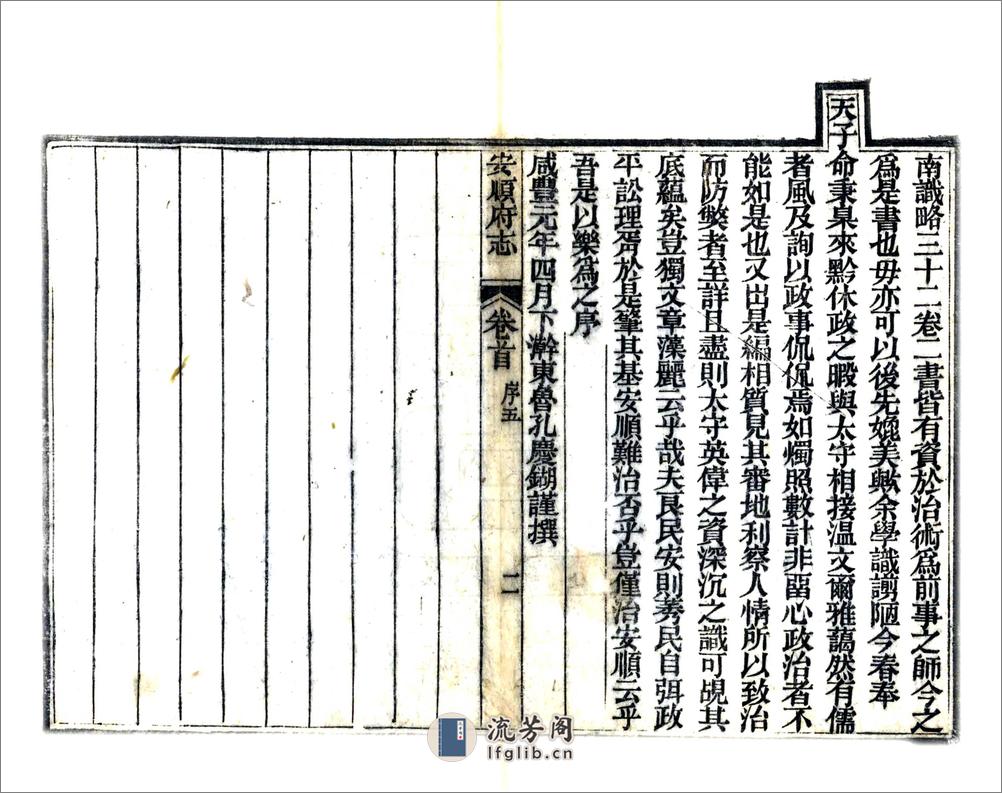 南識略三十二卷二書皆有資於治術爲前事之師今之
爲是書也毋亦可以後先媲美歟余學識謭陋今春奉
天子命秉臬來黔休政之暇與太守相接温文爾雅藹然有儒
者風及詢以政事侃侃焉如燭照數計非留心政治者不
能如是也又出是編相質見其審地利察人情所以致治
而防獘者至詳且盡則太守英偉之資深沉之識可覘其
底蘊矣豈獨文章藻麗云乎哉夫良民安則莠民自弭政
平訟理胥於是肇其基安順難治否乎豈僅治安順云乎
吾是以樂爲之序
咸豐元年四月下澣東魯孔慶鍸謹撰
安順府志
卷首
序五
二
流芳阁
lfglib.cn